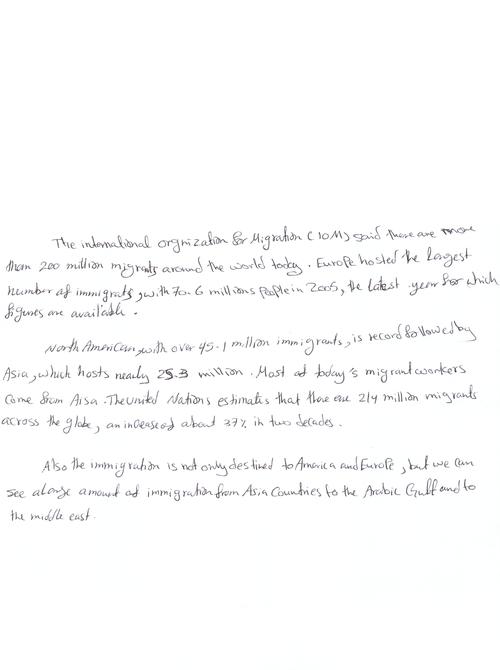 The international orgnization for Migration (IOM) said there are more
than 200 million migrants around the world today. Europe hosted the largest
number of immigrants, with 70.6 millions people in 2005, the latest year for which
figures are available.
North American, with over 45.1 million immigrants, is record followed by
Asia, which hosts nearly 25.3 million. Most of today's migrant workers
come from Aisa. The united Nations estimates that there are 214 million migrants
across the globe, an increase of about 37% in two decades.
Also the immigration is not only destined to America and Europe, but we can
see a large amount of immigration from Asia Countries to the Arabic Gulf and to
the middle east.